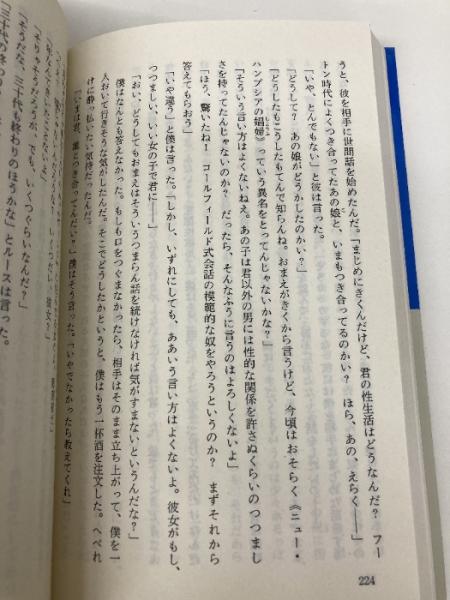 うと、彼を相手に世間話を始めたんだ。「まじめにきくんだけど、君の性生活はどうなんだ？　フー
トン時代によくつき合ってたあの娘と、いまもつき合ってるのかい？　ほら、あの、えらく――」
「いや、とんでもない」と彼は言った。
「どうして？　あの娘がどうかしたのかい？」
「どうしたもこうしたもてんで知らんね。おまえがきくから言うけど、今頃はおそらく《ニュー・
ハンプシアの娼婦》っていう異名をとってんじゃないかな？」
「そういう言い方はよくないねえ。あの子は君以外の男には性的な関係を許さぬくらいのつつまし
さを持ってたんじゃないのか？　だったら、そんなふうに言うのはよろしくないよ」
「ほう、驚いたね！　コールフィールド式会話の模範的な奴をやろうというのか？　まずそれから
答えてもらおう」
「いや違う」と僕は言った。「しかし、いずれにしても、ああいう言い方はよくないよ。彼女がもし、
つつましい、いい女の子で君に――」
「おい、どうしてもおまえはそういうつまらん話を続けなければ気がすまないというんだな？」
僕はなんとも答えなかった。もしも口をつぐまなかったら、相手はそのまま立ち上がって、僕を一
人おいて行きそうな気がしたんだ。そこでどうしたかというと、僕はもう一杯酒を注文した。へべれ
けに酔っ払いたい気持だったんだ。
「いまは君、誰とつき合ってんだい？」僕はそう言った。「いやでなかったら教えてくれ」
「そりゃそうだろうが、でも、いくつぐらいなんだ？」
「そうだな、三十代も終わりのほうかな」とルースは言った。
224